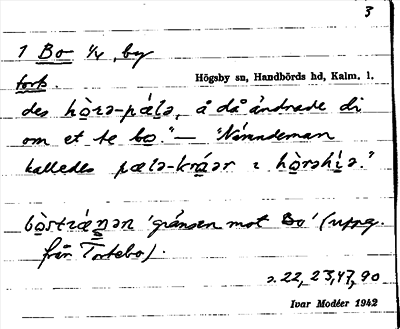 3
1 Bo 1/4, by
torb. Högsby sn, Handbörds hd, Kalm. l.
des hòrə-pǽlə, å då ändrade di
om et te bo." — "Nämndeman
kalledes pælə-kráər i hòrəhíə."
bòstrǽnən 'gränsen mot Bo' (uppg.
från Tortebo).
s. 22, 23, 47, 90
Ivar Modéer 1942